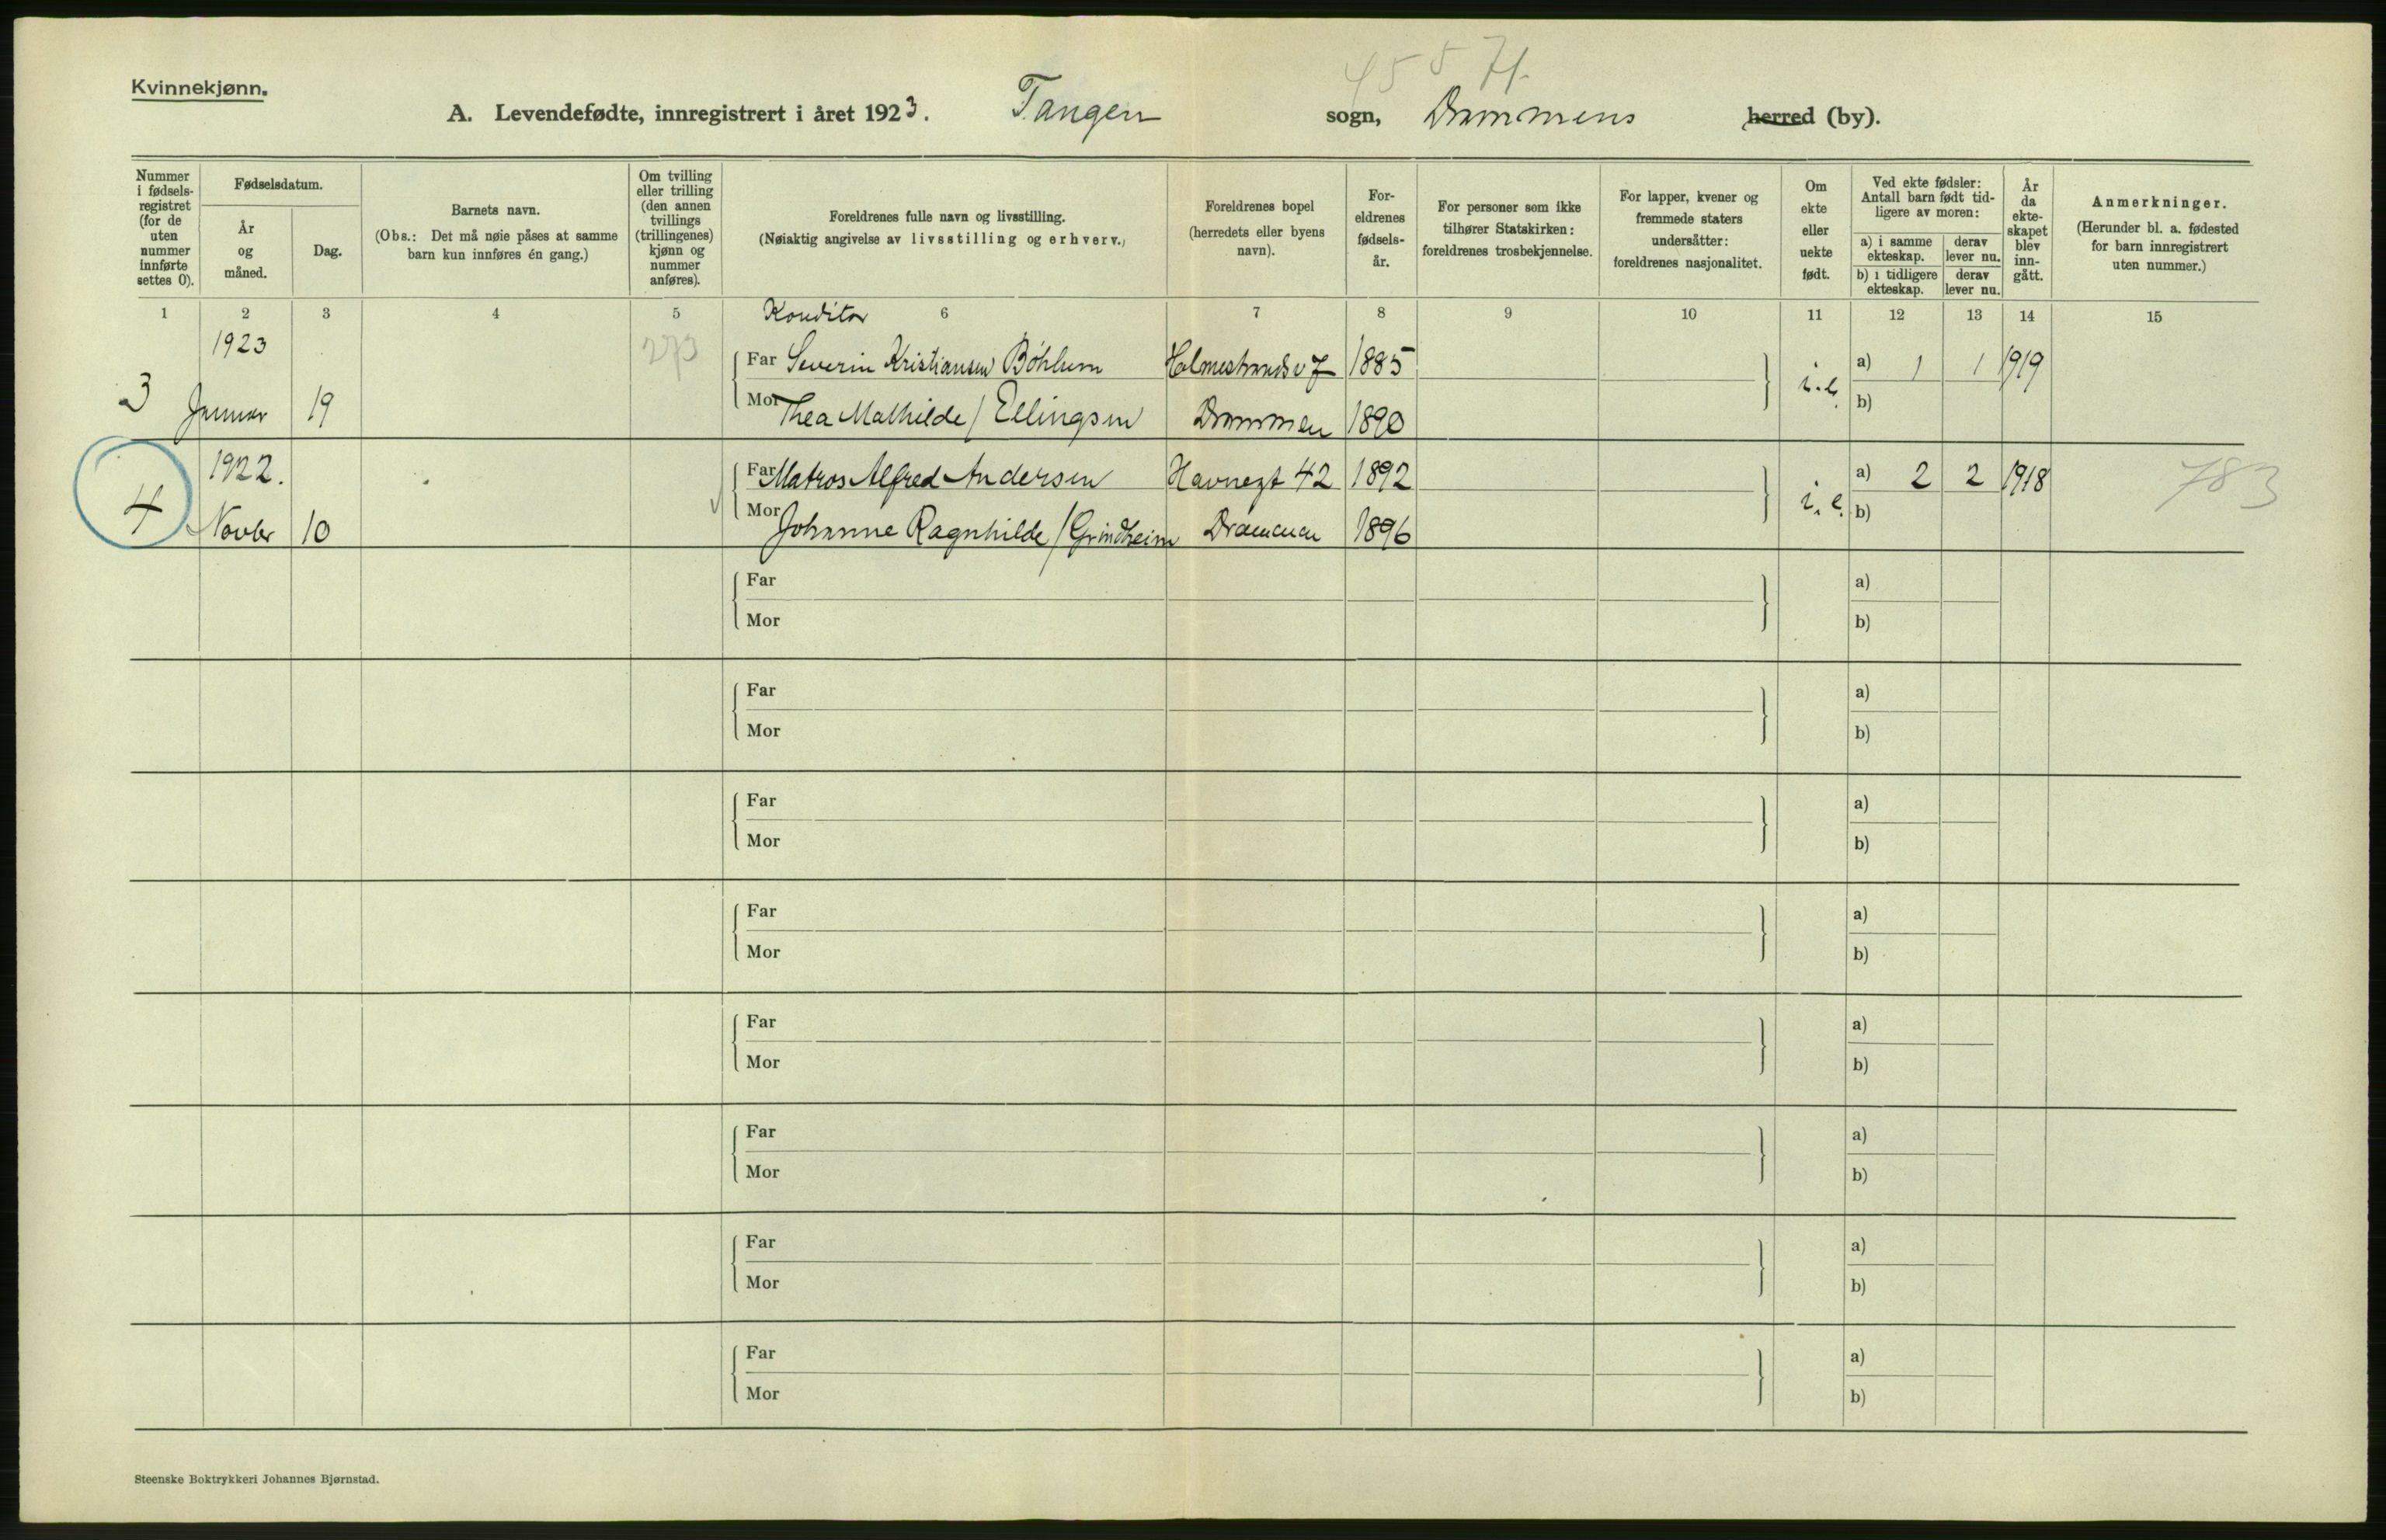 Kvinnekjønn.
4557
A. Levendefødte, innregistrert i året 1923. Tangen sogn, Drammens herred (by).
Nummer i fødsels-registret (for de uten nummer innførte settes 0).
Fødselsdatum.
År og måned.
Dag.
Barnets navn.
(Obs.: Det må nøie påses at samme barn kun innføres én gang.)
Om tvilling eller trilling (den annen tvillings (trillingenes) kjønn og nummer anføres).
Foreldrenes fulle navn og livsstilling.
(Nøiaktig angivelse av livsstilling og erhverv.)
Foreldrenes bopel (herredets eller byens navn).
For-eldrenes fødsels-år.
For personer som ikke tilhører Statskirken: foreldrenes trosbekjennelse.
For lapper, kvener og fremmede staters undersåtter: foreldrenes nasjonalitet.
Om ekte eller uekte født.
Ved ekte fødsler: Antall barn født tid-ligere av moren:
a) i samme ekteskap.
derav lever nu.
b) i tidligere ekteskap.
derav lever nu.
År da ekte-skapet blev inn-gått.
Anmerkninger.
(Herunder bl. a. fødested for barn innregistrert uten nummer.)
1 2 3 4 5 6 7 8 9 10 11 12 13 14 15
Konditor
1923 273 Far Severin Kristiansen Böhlum Holmestrandsv 7 1885 a) 1 1 1919
3 Januar 19 Mor Thea Mathilde / Ellingsen Drammen 1890 i.e. b)
1922. Far Matros Alfred Andersen Havnegt 42 1892 a) 2 2 1918 783
4 Novbr 10 Mor Johanne Ragnhilde / Grindheim Drammen 1896 i.e. b)
Far a)
Mor b)
Far a)
Mor b)
Far a)
Mor b)
Far a)
Mor b)
Far a)
Mor b)
Far a)
Mor b)
Far a)
Mor b)
Far a)
Mor b)
Steenske Boktrykkeri Johannes Bjørnstad.